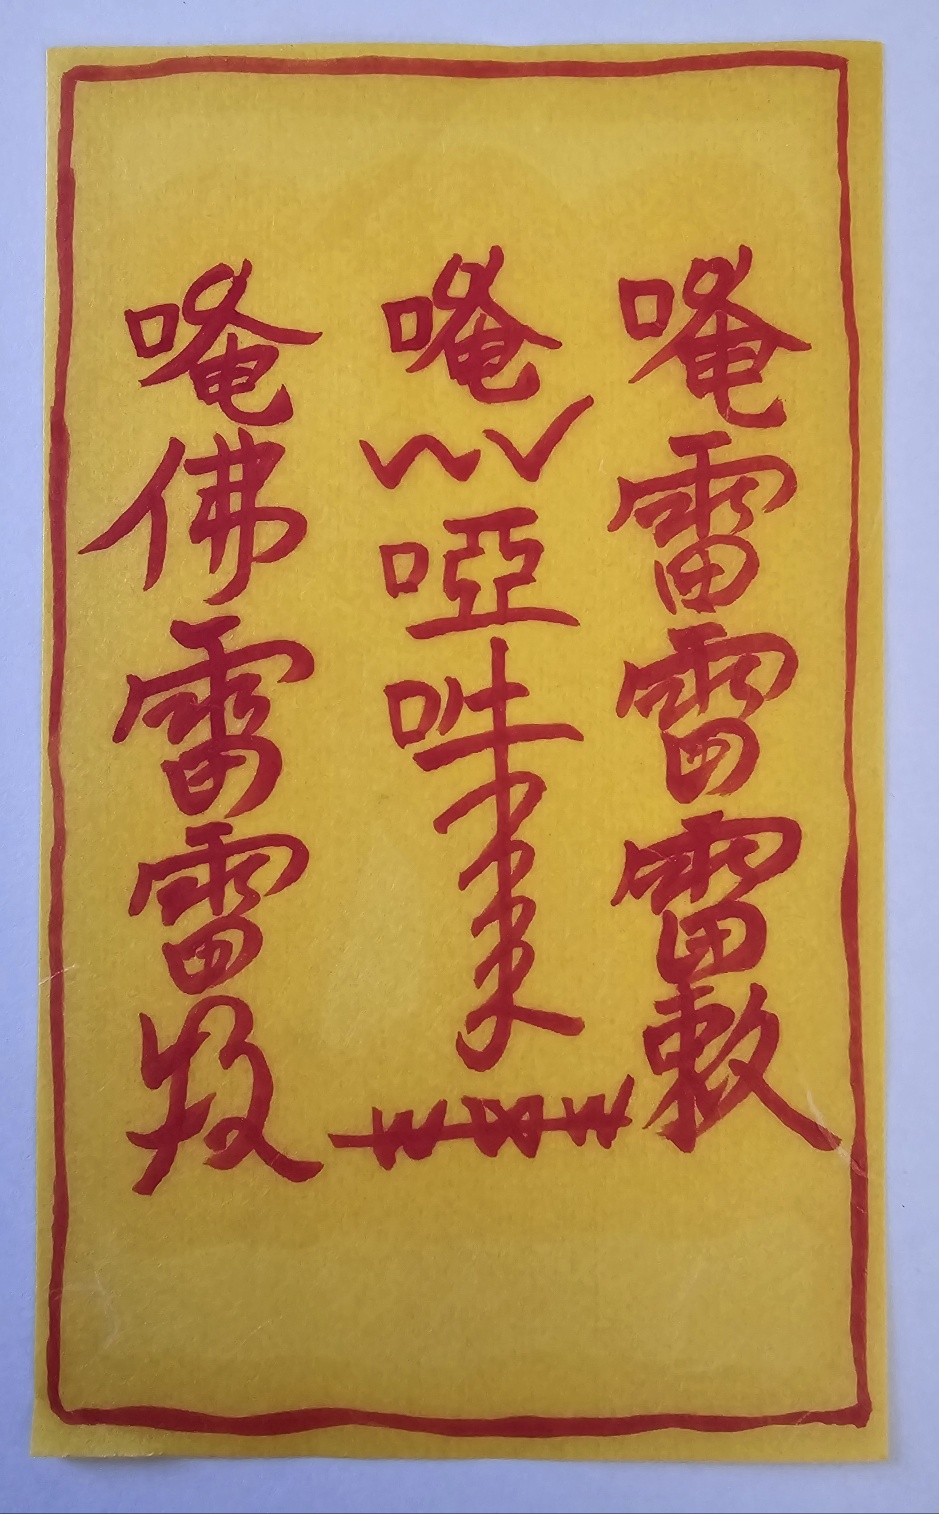 唵雷雷雷敕
唵啞吽
唵佛雷雷